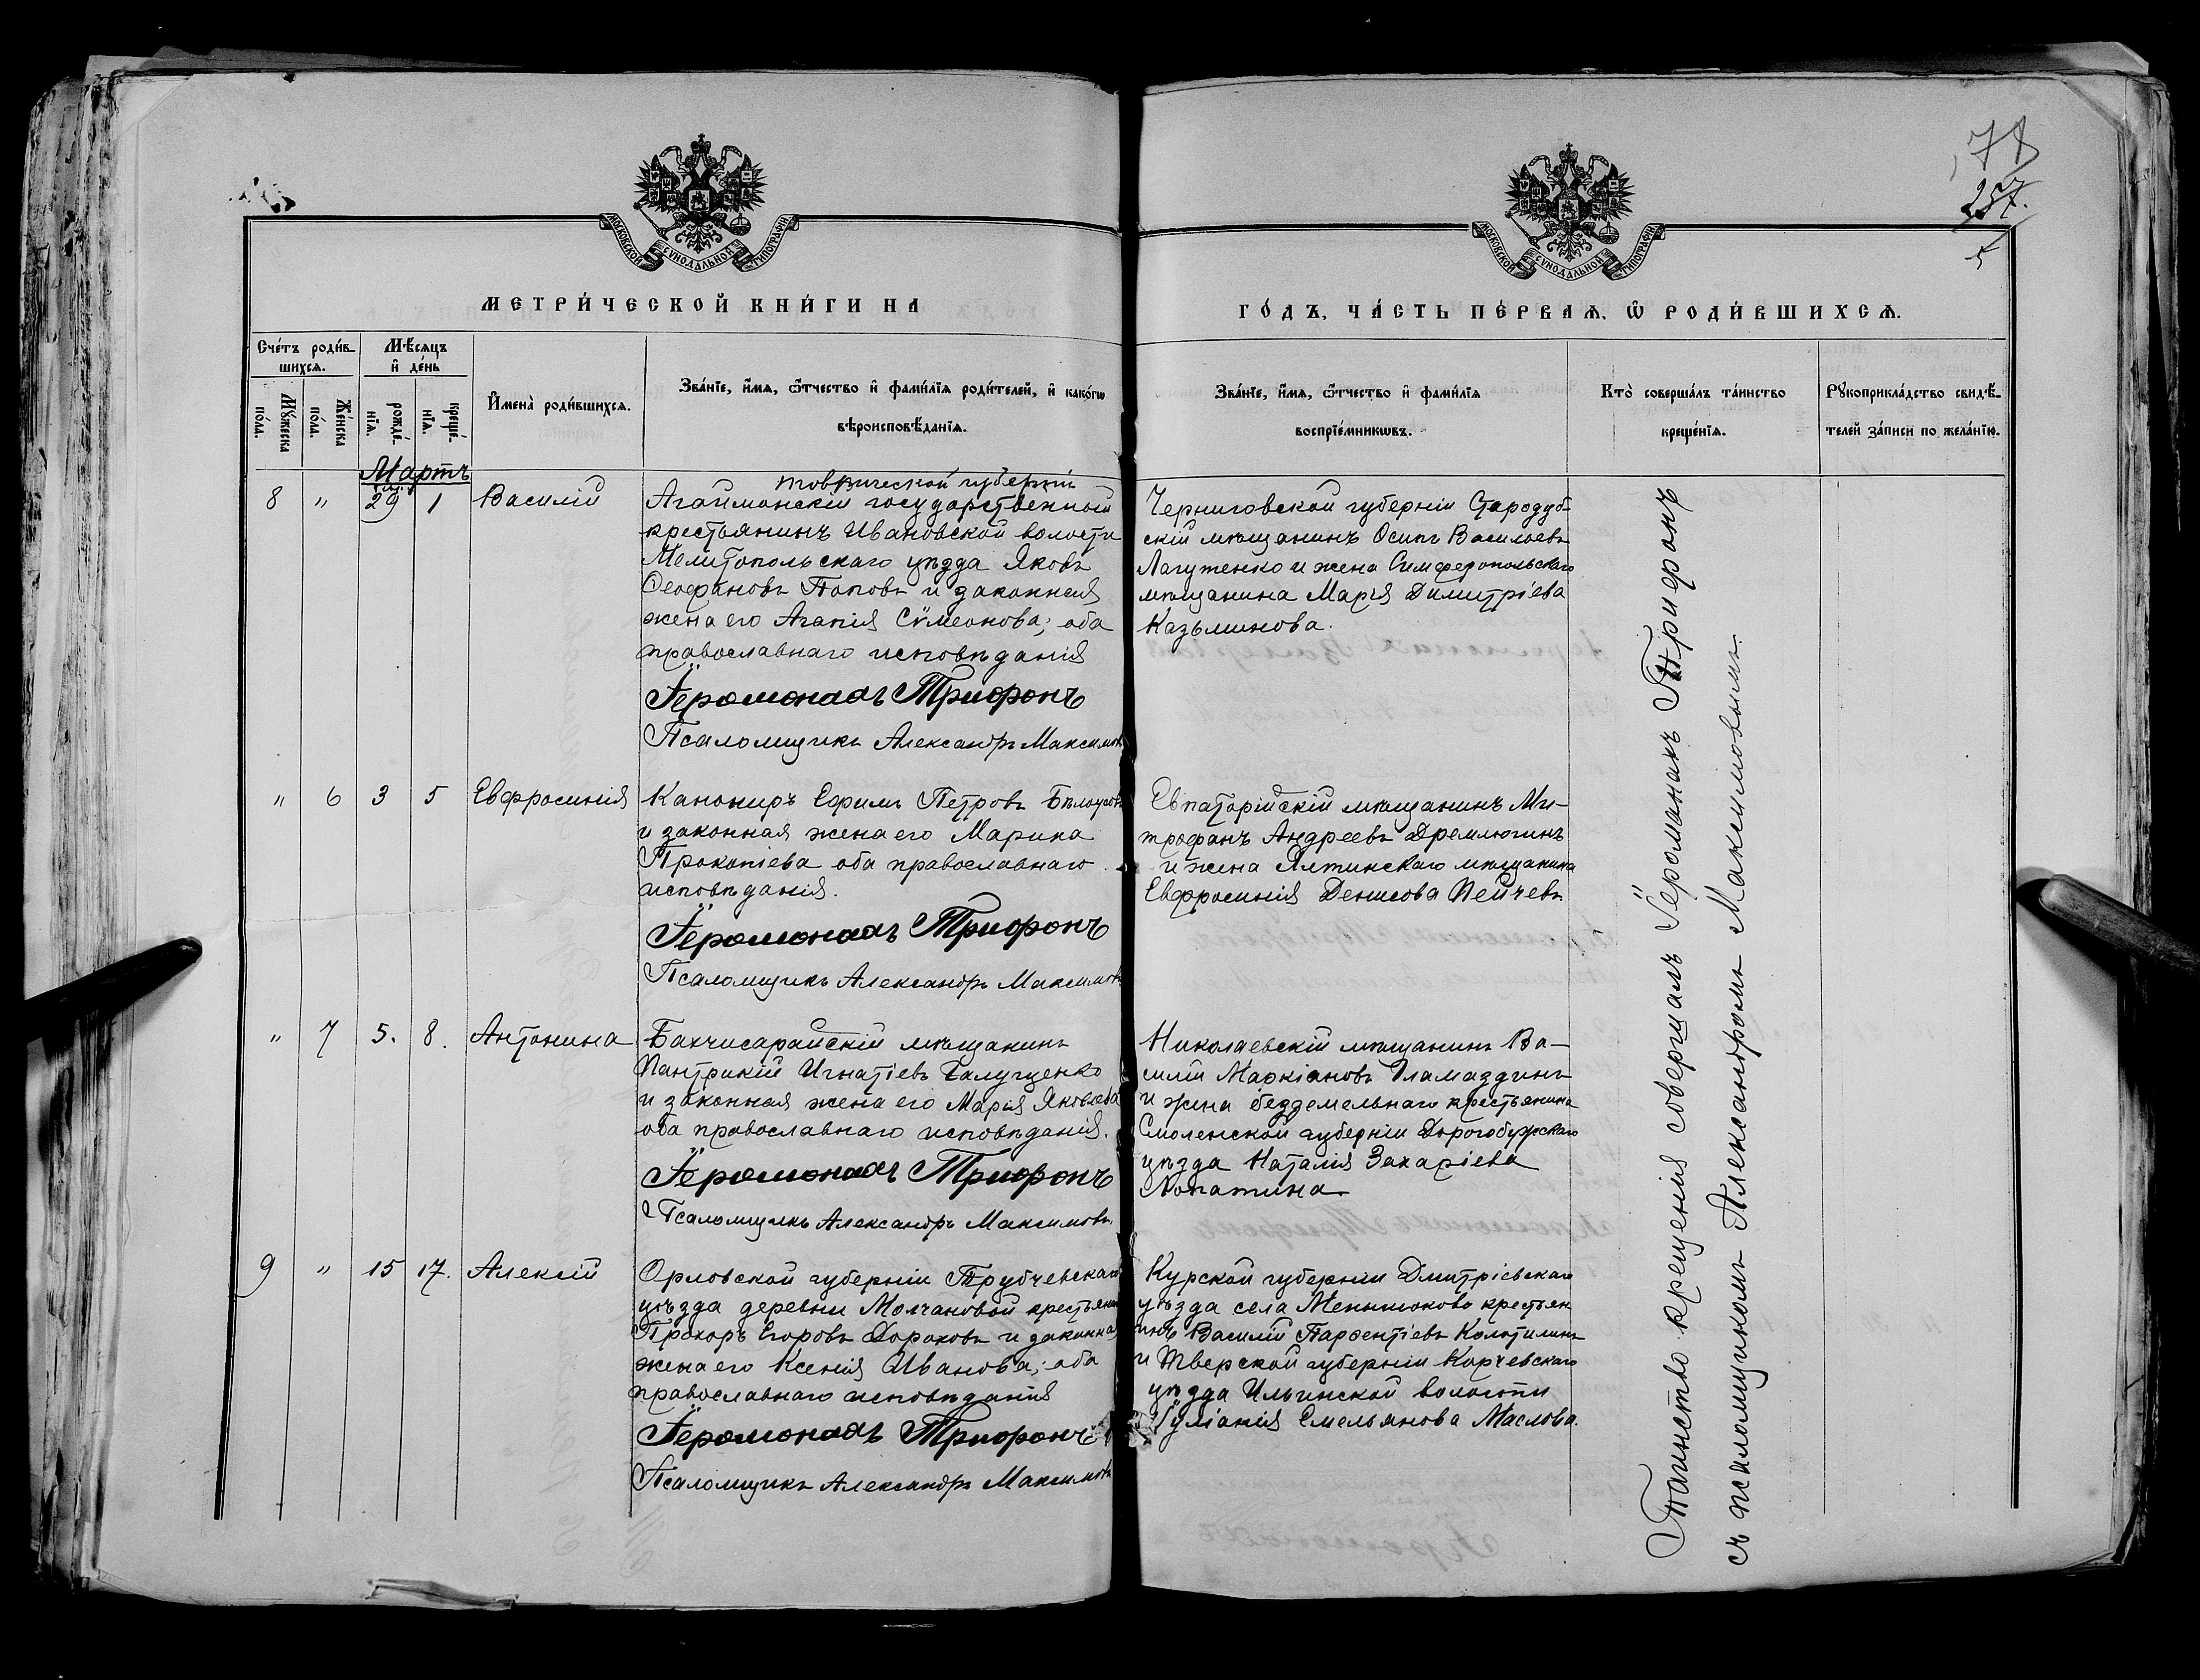 78
257.
МОСКОВСКОЙ СУНОДАЛЬНОЙ ТИПОГРАФІИ
МОСКОВСКОЙ СУНОДАЛЬНОЙ ТИПОГРАФІИ
МЕТРИ́ЧЕСКОЙ КНИ́ГИ НА
ГО́ДЪ, ЧА́СТЬ ПЕ́РВАѦ, Ѡ РОДИ́ВШИХСѦ.
Сче́тъ роди́в-
шихсѧ.
Мꙋ́жеска
по́ла.
Же́нска
по́ла.
Мѣ́сѧцъ
и҆ де́нь
рожде́-
нїѧ.
креще́-
нїѧ.
И҆мена̀ роди́вшихсѧ.
Зва́нїе, и҆́мѧ, ѻ҆́тчество и҆ фами́лїѧ роди́телей, и҆ како́гѡ
вѣроисповѣ́данїѧ.
Зва́нїе, и҆́мѧ, ѻ҆́тчество и҆ фами́лїѧ
воспрїе́мникѡвъ.
Кто̀ соверша́лъ та́инство
креще́нїѧ.
Рꙋкоприкла́дство свидѣ́-
телей за́писи по жела́нїю.
Мартъ
8 " 29 1 Василій
Таврической губерніи
Агайманскій государственный
крестьянинъ Ивановской волости
Мелитопольскаго уѣзда Яковъ
Ѳеофановъ Поповъ и законная
жена его Агапія Сѵмеонова; оба
православнаго исповѣданія
Іеромонахъ Трифонъ
Псаломщикъ Александръ Максимовъ
Черниговской губерніи Стародуб-
скій мѣщанинъ Осипъ Васильевъ
Лагутенко и жена Симферопольскаго
мѣщанина Марія Димитріева
Казьминова.
" 6 3 5 Евфросинія
Канониръ Ефимъ Петровъ Бѣлоусовъ
и законная жена его Марина
Прокопіева оба православнаго
исповѣданія.
Іеромонахъ Трифонъ
Псаломщикъ Александръ Максимовъ
Евпаторійскій мѣщанинъ Ми-
трофанъ Андреевъ Дремлюгинъ
и жена Ялтинскаго мѣщанина
Евфросинія Денисова Пейчевъ
" 7 5. 8. Антонина
Бахчисарайскій мѣщанинъ
Пантрикій Игнатіевъ Галущенко
и законная жена его Марія Яковлева
оба православнаго исповѣданія.
Іеромонахъ Трифонъ
Псаломщикъ Александръ Максимовъ.
Николаевскій мѣщанинъ Ва-
силій Маркіановъ Гламаздинъ
и жена безземельнаго крестьянина
Смоленской губерніи Дорогобужскаго
уѣзда Наталія Захаріева
Лопатина
9 " 15 17. Алексій
Орловской губерніи Трубчевскаго
уѣзда деревни Молчановой крестьянинъ
Прохоръ Егоровъ Дороховъ и законная
жена его Ксенія Иванова; оба
православнаго исповѣданія
Іеромонахъ Трифонъ
Псаломщикъ Александръ Максимовъ
Курской губерніи Дмитріевскаго
уѣзда села Меньшиково крестьян
инъ Василій Парфентіевъ Колотилинъ
и Тверской губерніи Корчевскаго
уѣзда Ильинской волости
Іуліанія Емельянова Маслова.
Таинство крещенія совершалъ Іеромонахъ Трифонъ
съ псаломщикомъ Александромъ Максимовымъ.